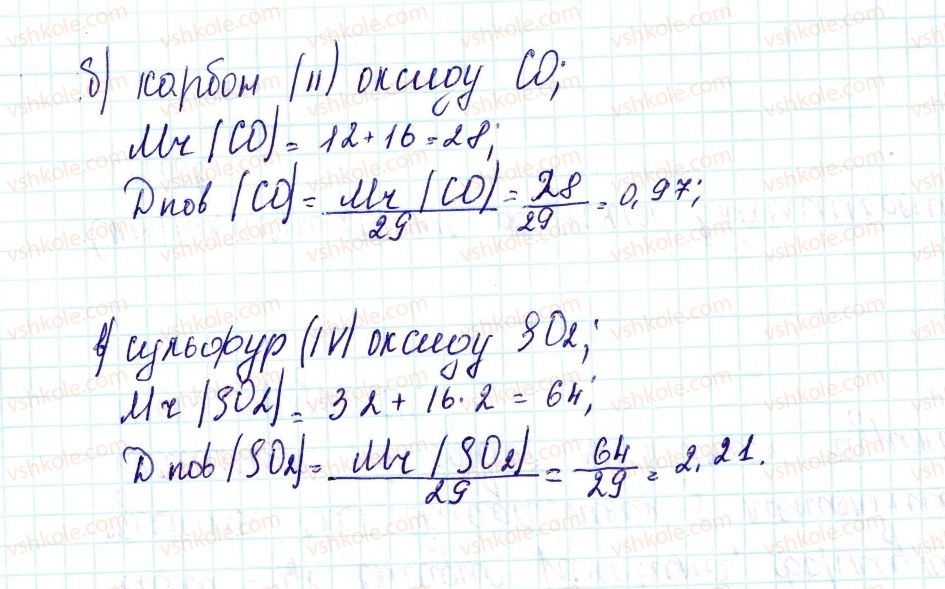 б) карбон (II) оксиду CO;
Mr (CO) = 12 + 16 = 28;
Dпов (CO) = Mr (CO) / 29 = 28 / 29 = 0,97;
в) сульфур (IV) оксиду SO2;
Mr (SO2) = 32 + 16 · 2 = 64;
Dпов (SO2) = Mr (SO2) / 29 = 64 / 29 = 2,21.
vshkole.com